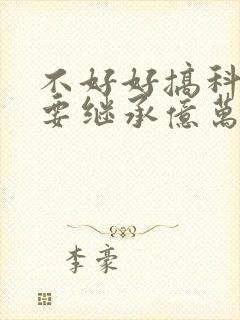 不好好搞科
要继承億萬
李豪